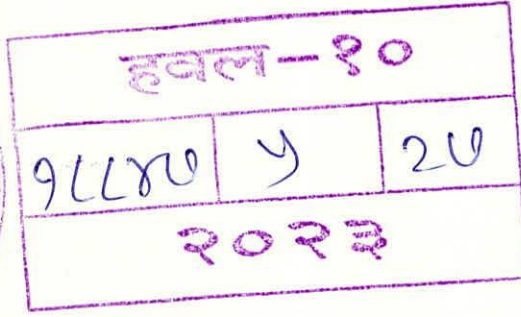 हवल-१०
१८८४७ ५ २७
२०२३